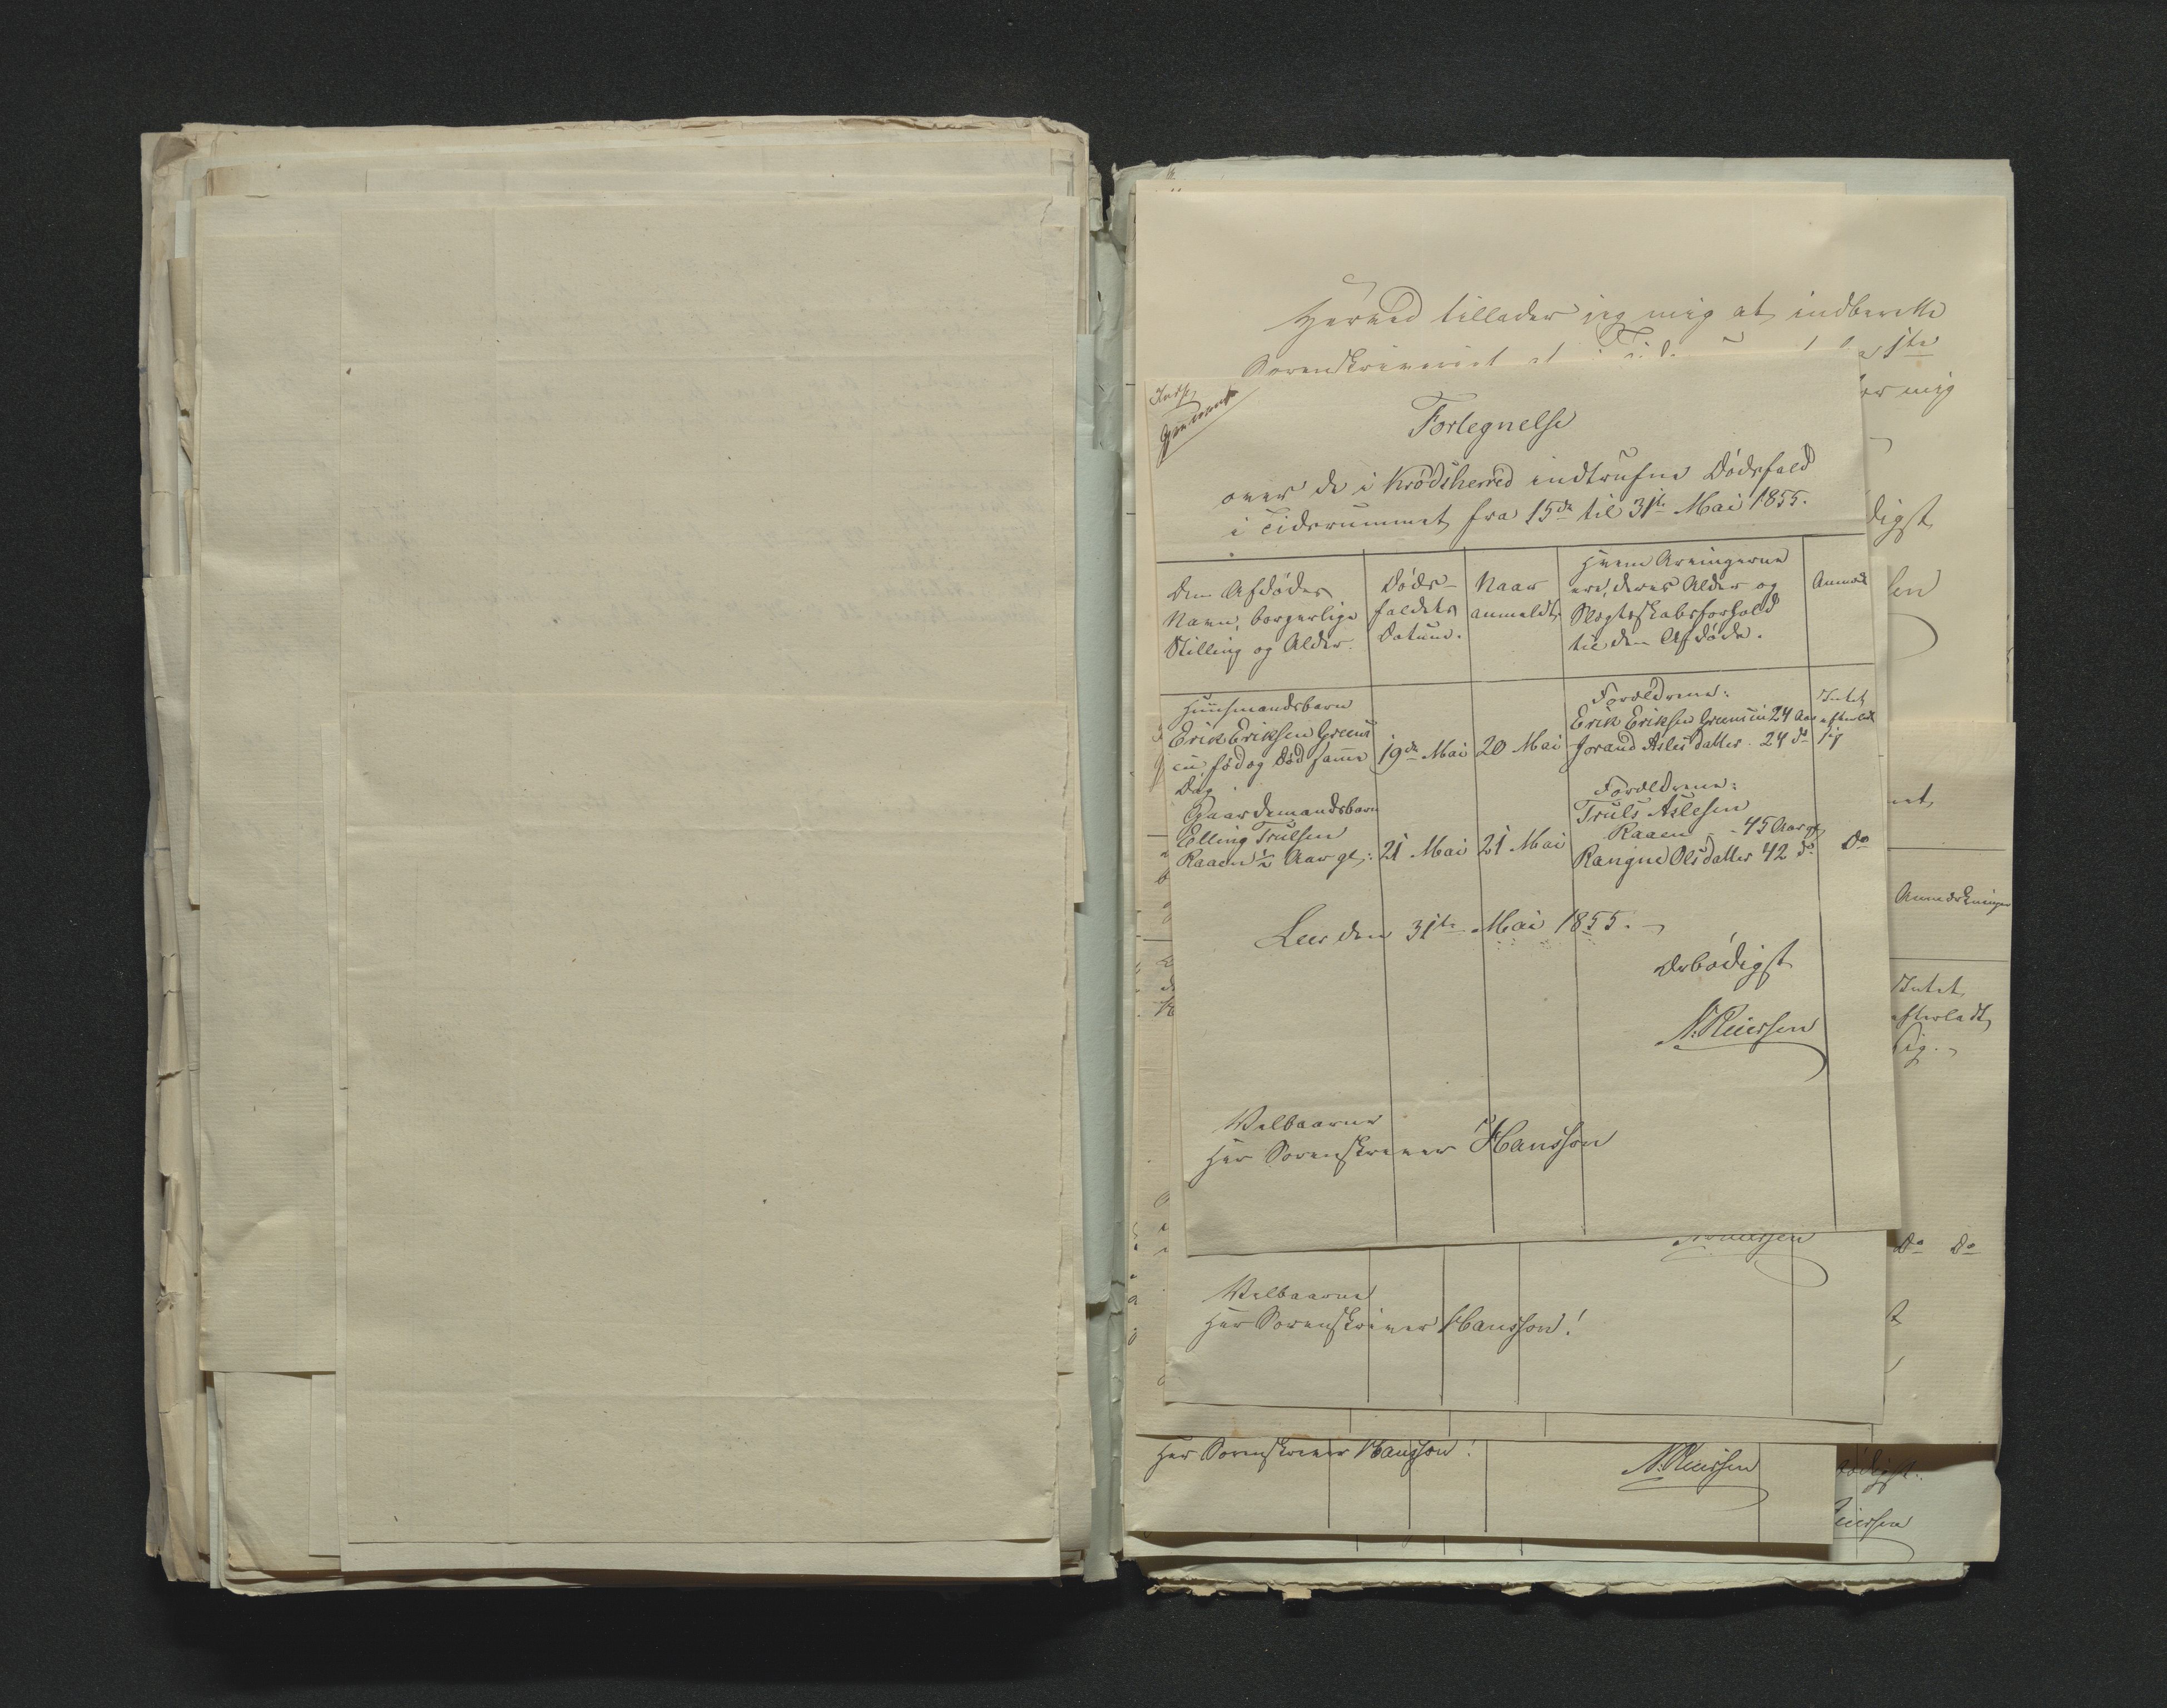 Herved tillader jeg mig at indberette
Sorenskriveriet at
1ste
for mig
Fortegnelse
over de i Krødsherred indtrufne Dødsfald
i Tidsrummet fra 15de til 31te Mai 1855.
Den Afdødes
Navn, borgerlige
Stilling og Alder.
Døds-
faldets
Datum.
Naar
anmeldt
Hvem Arvingerne
ere, deres Alder og
Slægtskabsforhold
til den Afdøde.
Anmærk
Huusmandsbarn
Erik Eriksen Green
født og død samme
Dag.
19de Mai
20 Mai
Forældrene:
Erik Eriksen 24 Aar
Jorand Aslesdatter 24 do
Intet
efterladt
sig
Gaardmandsbarn
Elling Trulsen
Raaen ½ Aar gl:
21 Mai
21 Mai
Forældrene:
Truls Aslesen
Raaen - - 45 Aar gl
Rangne Olsdatter 42 do
Do
Leer den 31te Mai 1855.
Ærbødigst
N. Reiersen
Velbaarne
Herr Sorenskriver Hansson
Velbaarne
Herr Sorenskriver Hansson!
Herr Sorenskriver Hansson!
N. Reiersen
Anmærkninger
Intet
efterladt
sig.
Do Do